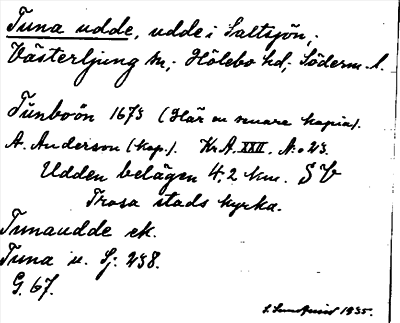 Tuna udde, udde i Saltsjön,
Västerljung sn, Hölebo hd, Söderm. l.
Tŭnboön 1673 (Här en senare kopia).
A. Anderson (kop.). Kr.A. XXII. No 23.
Udden belägen 4,2 km. SV
Trosa stads kyrka.
Tunaudde ek.
Tuna u. Sj. 238.
G. 67.
1935.